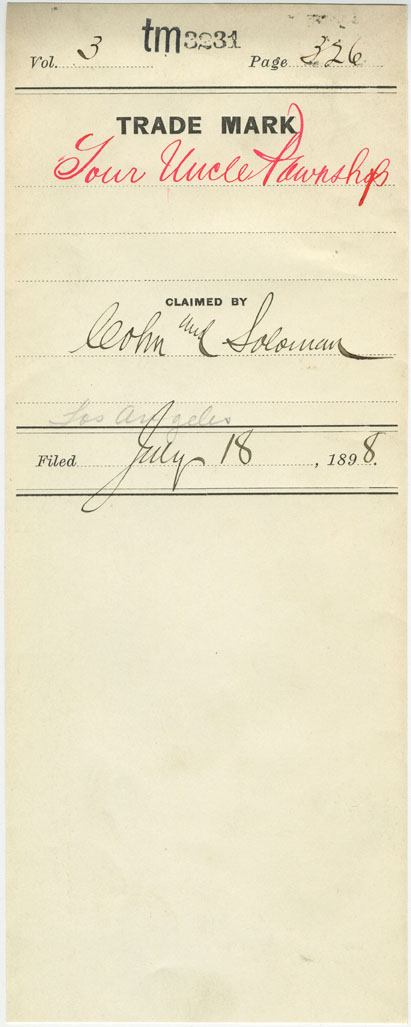 tm3231
Vol. 3 Page 326
TRADE MARK
Your Uncle Pawnshop
CLAIMED BY
Cohn and Soloman
Los Angeles
Filed July 18, 1898.